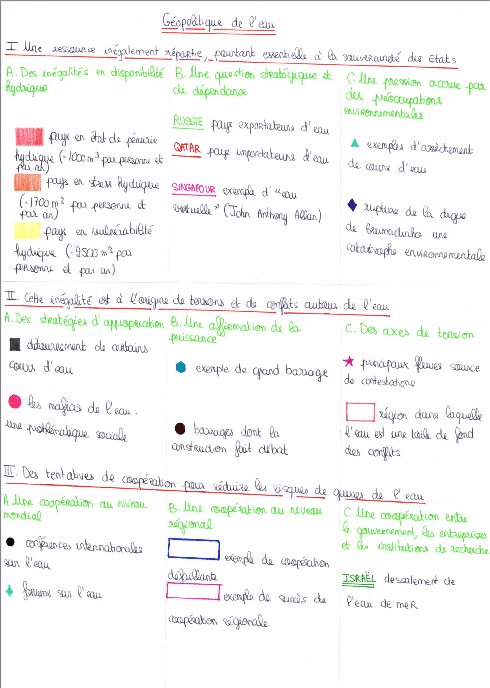 Géopolitique de l'eau
I. Une ressource inégalement répartie, pourtant essentielle à la souveraineté des Etats
A. Des inégalités en disponibilité
hydrique
pays en état de pénurie
hydrique (-1000 m³ par personne et
par an)
pays en stress hydrique
(-1700 m³ par personne et
par an)
pays en vulnérabilité
hydrique (-2500 m³ par
personne et par an)
B. Une question stratégique et
de dépendance
RUSSIE pays exportateurs d'eau
QATAR pays importateurs d'eau
SINGAPOUR exemple d'"eau
virtuelle" (John Anthony Allan)
C. Une pression accrue par
des préoccupations
environnementales
exemples d'assèchement
de cours d'eau
rupture de la digue
de Brumadinho une
catastrophe environnementale
II. Cette inégalité est à l'origine de tensions et de conflits autour de l'eau
A. Des stratégies d'appropriation
détournement de certains
cours d'eau
les mafias de l'eau :
une problématique sociale
B. Une affirmation de la
puissance
exemple de grand barrage
barrages dont la
construction fait débat
C. Des axes de tension
principaux fleuves source
de contestations
région dans laquelle
l'eau est une toile de fond
des conflits
III. Des tentatives de coopération pour réduire les risques de guerres de l'eau
A. Une coopération au niveau
mondial
conférences internationales
sur l'eau
forums sur l'eau
B. Une coopération au niveau
régional
exemple de coopération
défaillante
exemple de succès de
coopération régionale
C. Une coopération entre
le gouvernement, les entreprises
et les institutions de recherche
ISRAËL dessalement de
l'eau de meR